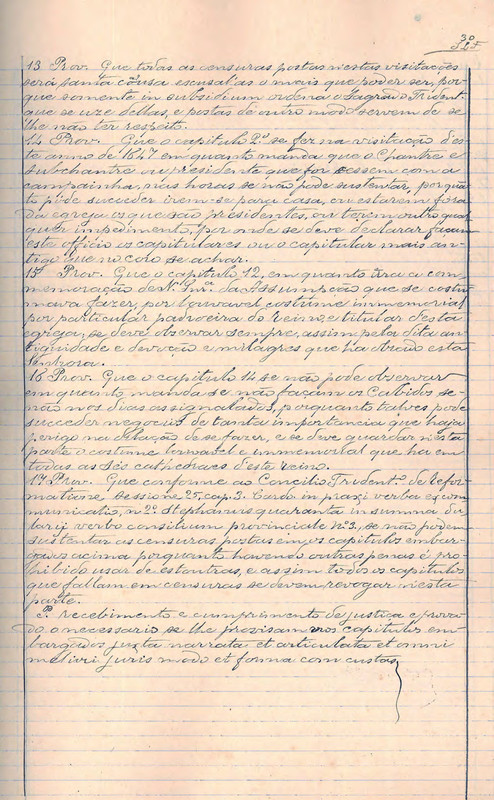 30
13 Prov. Que todas as censuras postas nestas visitações
será santa cousa escusal as o mais que poder ser, por
que somente in subsidium ordena o Sagrado Trident.
que se uze dellas, e postas de outro modo servem de se
lhe não ter respeito.
14 Prov. Que o capitulo 2º se fez na visitação des
te anno de 1647 em quanto manda que o Chantre e
subchantre ou presidente que for sessem com a
campainha, nas horas se não póde sustentar, porqua
to póde succeder irem-se para casa, ou estarem fóra
da egreja os que são presidentes, ou terem outro qual
quer impedimento, por onde se deve declarar façam
este officio os capitulares ou o capitular mais an-
tigo que no coro se achar.
15 Prov. Que o capitulo 12, em quanto tira a com
memoração de Nª Snrª da Assumpção que se costu
mava fazer, por louvavel costume immemorial
por particular padroeira do reino e titular desta
egreja, se deve observar sempre, assim pela dita an
tiguidade e devoção e milagres que ha obrado esta
Senhora.
16 Prov. Que o capitulo 14 se não póde observar
em quanto manda se não façam os Cabidos se-
não nos dias assignalados, porquanto talves póde
succeder negocios de tanta importancia que haja
perigo na dilação de se fazer, e se deve guardar nesta
parte o costume louvavel e immemorial que ha em
todas as Sés cathedraes d'este reino.
17 Prov. Que conforme ao Concilio Trident. de Refor
matione sessione 25, cap. 3. Cardo in praxi verba excom
municatio, n. 2º Stephanus quaranta in summa bu
larij verbo consilium provinciale nº 3, se não podem
sustentar as censuras postas em os capitulos embar-
gados acima porquanto havendo outras penas é pro
hibido usar de estoutras, e assim todos os capitulos
que fallam em censuras se devem revogar nesta
parte.
P. recebimento e cumprimento de justiça e prova
do o necessario se lhe provisam nos capitulos em-
bargados juxta narrata et articulata et omni
meliori juris modo et forma com custas